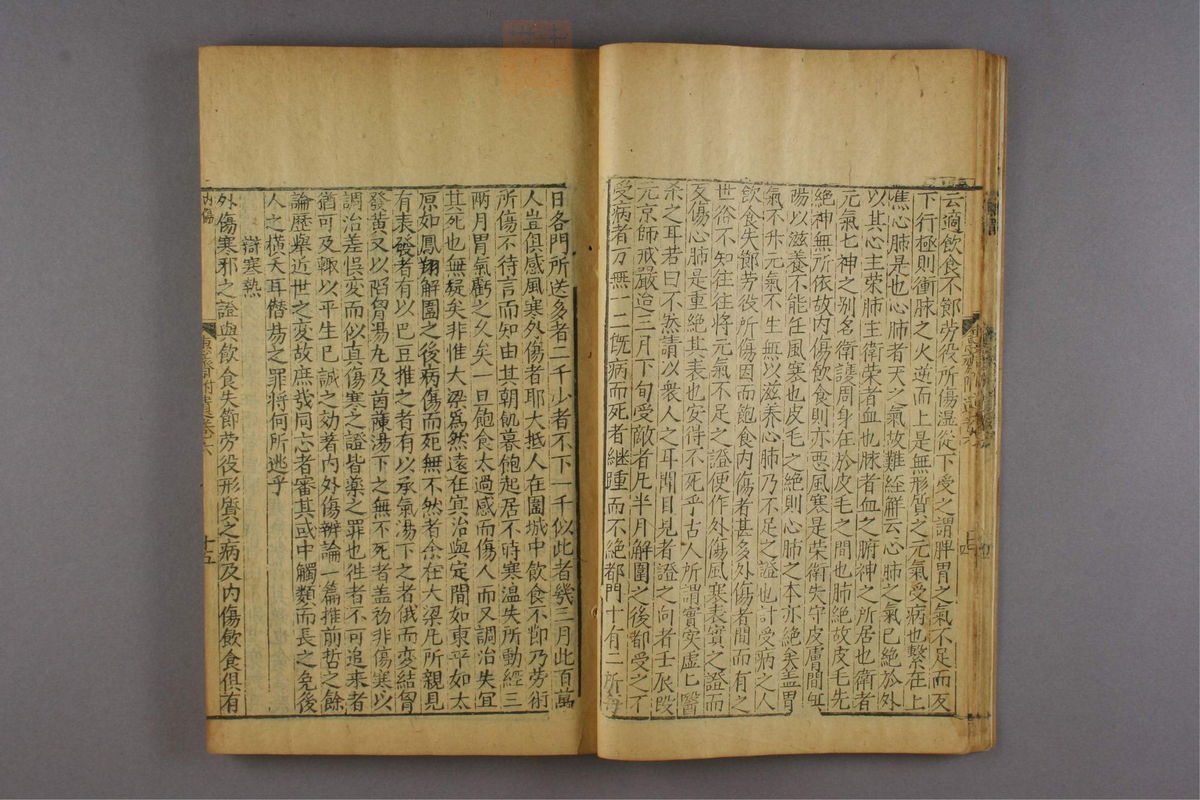 云適飲食不節勞役所傷濕從下受之謂脾胃之氣不足而反
下行極則衝脉之火逆而上是無形質之元氣受病也繫在上
焦心肺是也心肺者天之氣故難經觧云心肺之氣已絶於外
以其心主榮肺主衛榮者血也脉者血之腑神之所居也衛者
元氣七神之别名衛護周身在於皮毛之間也肺絶故皮毛先
絶神無所依故内傷飲食則亦惡風寒是荣衛失守皮膚間無
陽以滋養不能任風寒也皮毛之絶則心肺之本亦絶矣盖胃
氣不升元氣不生無以滋养心肺乃不足之證也計受病之人
飲食失節劳役所傷因而飽食内傷者甚多外傷者間而有之
世俗不知往往將元氣不足之證便作外傷風寒表實之證而
反傷心肺是重絶其表也安得不死乎古人所謂實實虚虚醫
杀之耳若曰不然請以衆人之耳聞目見者證之向者壬辰改
元京師戒嚴迨三月下旬受敵者凡半月解圍之後都受之不
受病者万無一二既病而死者継踵而不绝都門十有二所每
日各門所送多者二千少者不下一千似此者幾三月此百萬
人豈俱感風寒外傷者耶大抵人在圍城中飲食不節乃劳術
所傷不待言而知由其朝飢暮飽起居不時寒温失所動經三
两月胃氣虧之久矣一旦飽食太過感而傷人而又調治失宜
其死也無疑矣非惟大梁爲然遠在真治與定間如東平如太
原如鳳翔解圍之後病傷而死無不然者余在大梁凡所親見
有表發者有以巴豆推之者有以承氣湯下之者俄而变結胷
發黃又以陷胷湯丸及茵蔯湯下之無不死者盖初非傷寒以
調治差悮变而似真傷寒之證皆藥之罪也徃者不可追来者
猶可及輙以平生已試之効著内外傷辨論一篇推前哲之餘
論歷舉近世之变故庶我同志者審其或中觸類而長之免後
人之横夭耳僭易之罪將何所逃乎
辯寒熱
外傷寒邪之證與飲食失節劳役形質之病及内傷飲食俱有
十五